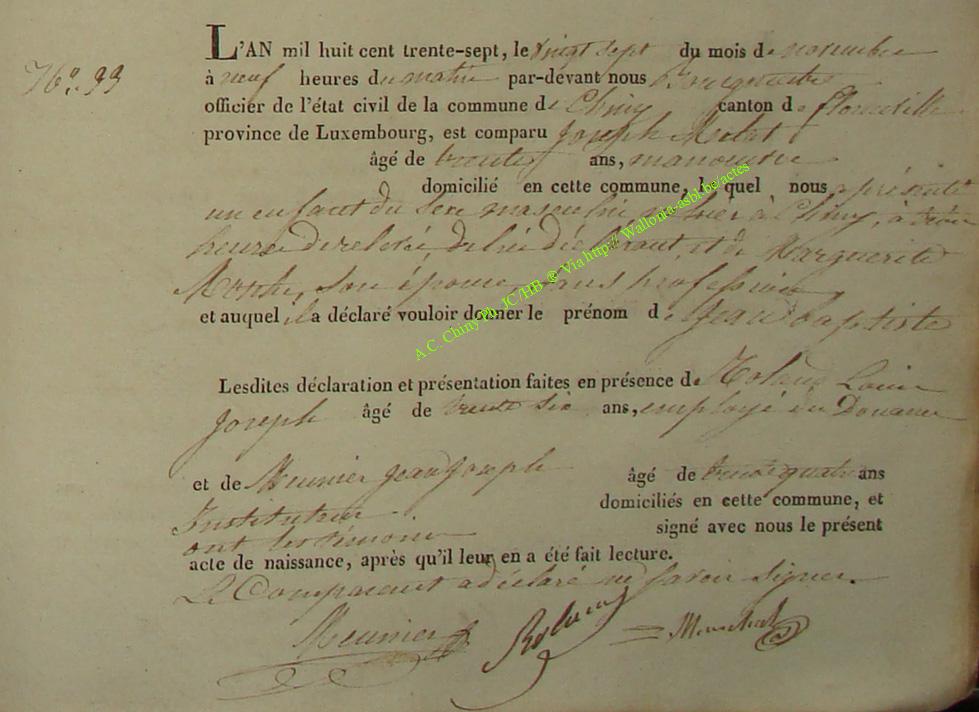 L'AN mil huit cent trente-sept, le vingt sept du mois de novembre
à neuf heures du matin par-devant nous Bourguemestre
officier de l'état civil de la commune de Chiny canton de Florenville
province de Luxembourg, est comparu Joseph
âgé de ans, manœuvre
domicilié en cette commune, lequel nous a présenté
un enfant du sexe masculin né hier à Chiny, à trois
heures de relevée, de lui déclarant, et de Marguerite
son épouse, sans profession
et auquel il a déclaré vouloir donner le prénom de Jean baptiste
Lesdites déclaration et présentation faites en présence de Roland Louis
Joseph âgé de trente six ans, employé des Douanes
et de Meunier Jean Joseph âgé de trente quatre ans
Instituteur domiciliés en cette commune, et
ont les témoins signé avec nous le présent
acte de naissance, après qu'il leur en a été fait lecture.
Le Comparant a déclaré ne savoir signer.
Meunier Roland
A.C. Chiny Ph. JC/HB ® Via http:// Wallonia-asbl.be/actes